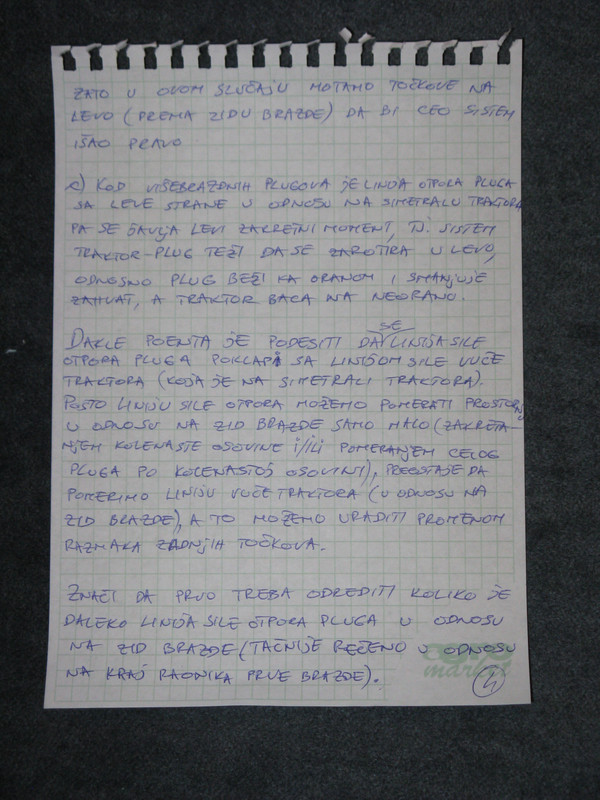 ZATO U OVOM SLUČAJU MOTAMO TOČKOVE NA
LEVO (PREMA ZIDU BRAZDE) DA BI CEO SISTEM
IŠAO PRAVO
c) KOD VIŠEBRAZDNIH PLUGOVA JE LINIJA OTPORA PLUGA
SA LEVE STRANE U ODNOSU NA SIMETRALU TRAKTORA
PA SE JAVLJA LEVI ZAKRETNI MOMENT, TJ. SISTEM
TRAKTOR-PLUG TEŽI DA SE ZAROTIRA U LEVO,
ODNOSNO PLUG BEŽI KA ORANOM I SMANJUJE
ZAHVAT, A TRAKTOR BACA NA NEORANO.
DAKLE POENTA JE PODESITI DA SE LINIJA SILE
OTPORA PLUGA POKLAPA SA LINIJOM SILE VUČE
TRAKTORA (KOJA JE NA SIMETRALI TRAKTORA).
POŠTO LINIJU SILE OTPORA MOŽEMO POMERATI PROSTORNO
U ODNOSU NA ZID BRAZDE SAMO MALO (ZAKRETA-
NJEM KOLENASTE OSOVINE I/ILI POMERANJEM CELOG
PLUGA PO KOLENASTOJ OSOVINI), PREOSTAJE DA
POMERIMO LINIJU VUČE TRAKTORA (U ODNOSU NA
ZID BRAZDE), A TO MOŽEMO URADITI PROMENOM
RAZMAKA ZADNJIH TOČKOVA.
ZNAČI DA PRVO TREBA ODREDITI KOLIKO JE
DALEKO LINIJA SILE OTPORA PLUGA U ODNOSU
NA ZID BRAZDE (TAČNIJE REČENO U ODNOSU
NA KRAJ RAONIKA PRVE BRAZDE).
4